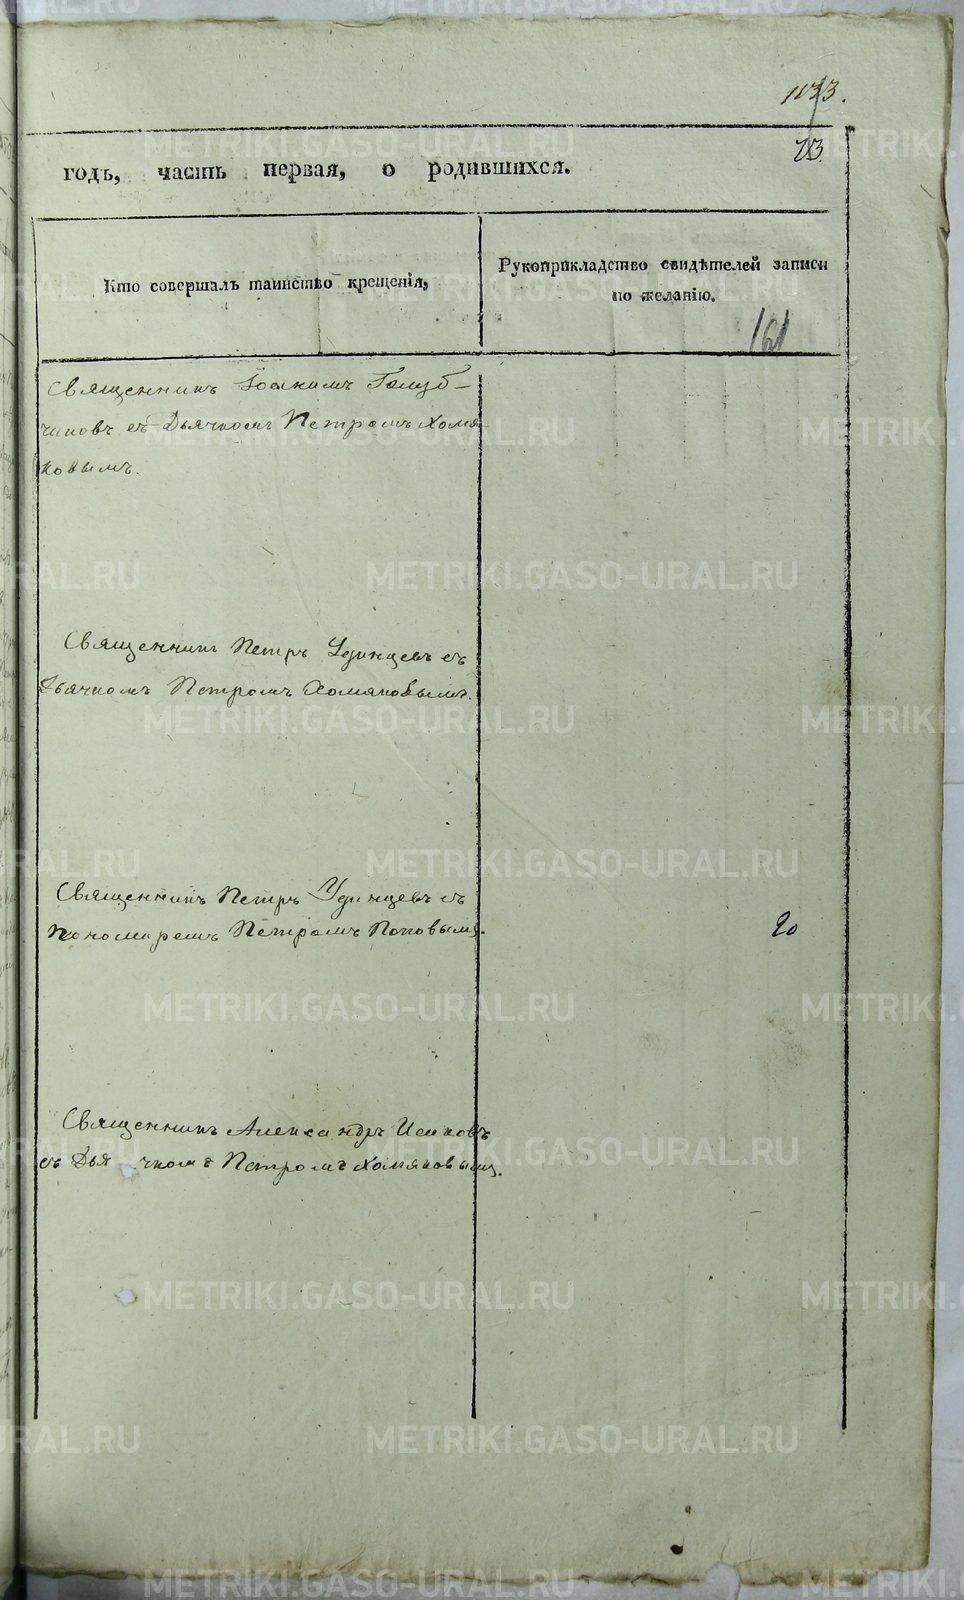 1133.
23
годъ, часть первая, о родившихся.
Кто совершалъ таинство крещенія,
Рукоприкладство свидѣтелей записи
по желанію.
161
Священникъ Іоакимъ Голуб-
чиковъ съ Дьячкомъ Петромъ Хомя-
ковымъ.
Священникъ Петръ Удинцевъ съ
Дьячкомъ Петромъ Хомяковымъ.
Священникъ Петръ Удинцевъ съ
Пономаремъ Петромъ Поповымъ.
20
Священникъ Александръ Исаковъ
съ Дьячкомъ Петромъ Хомяковымъ.
METRIKI.GASO-URAL.RU